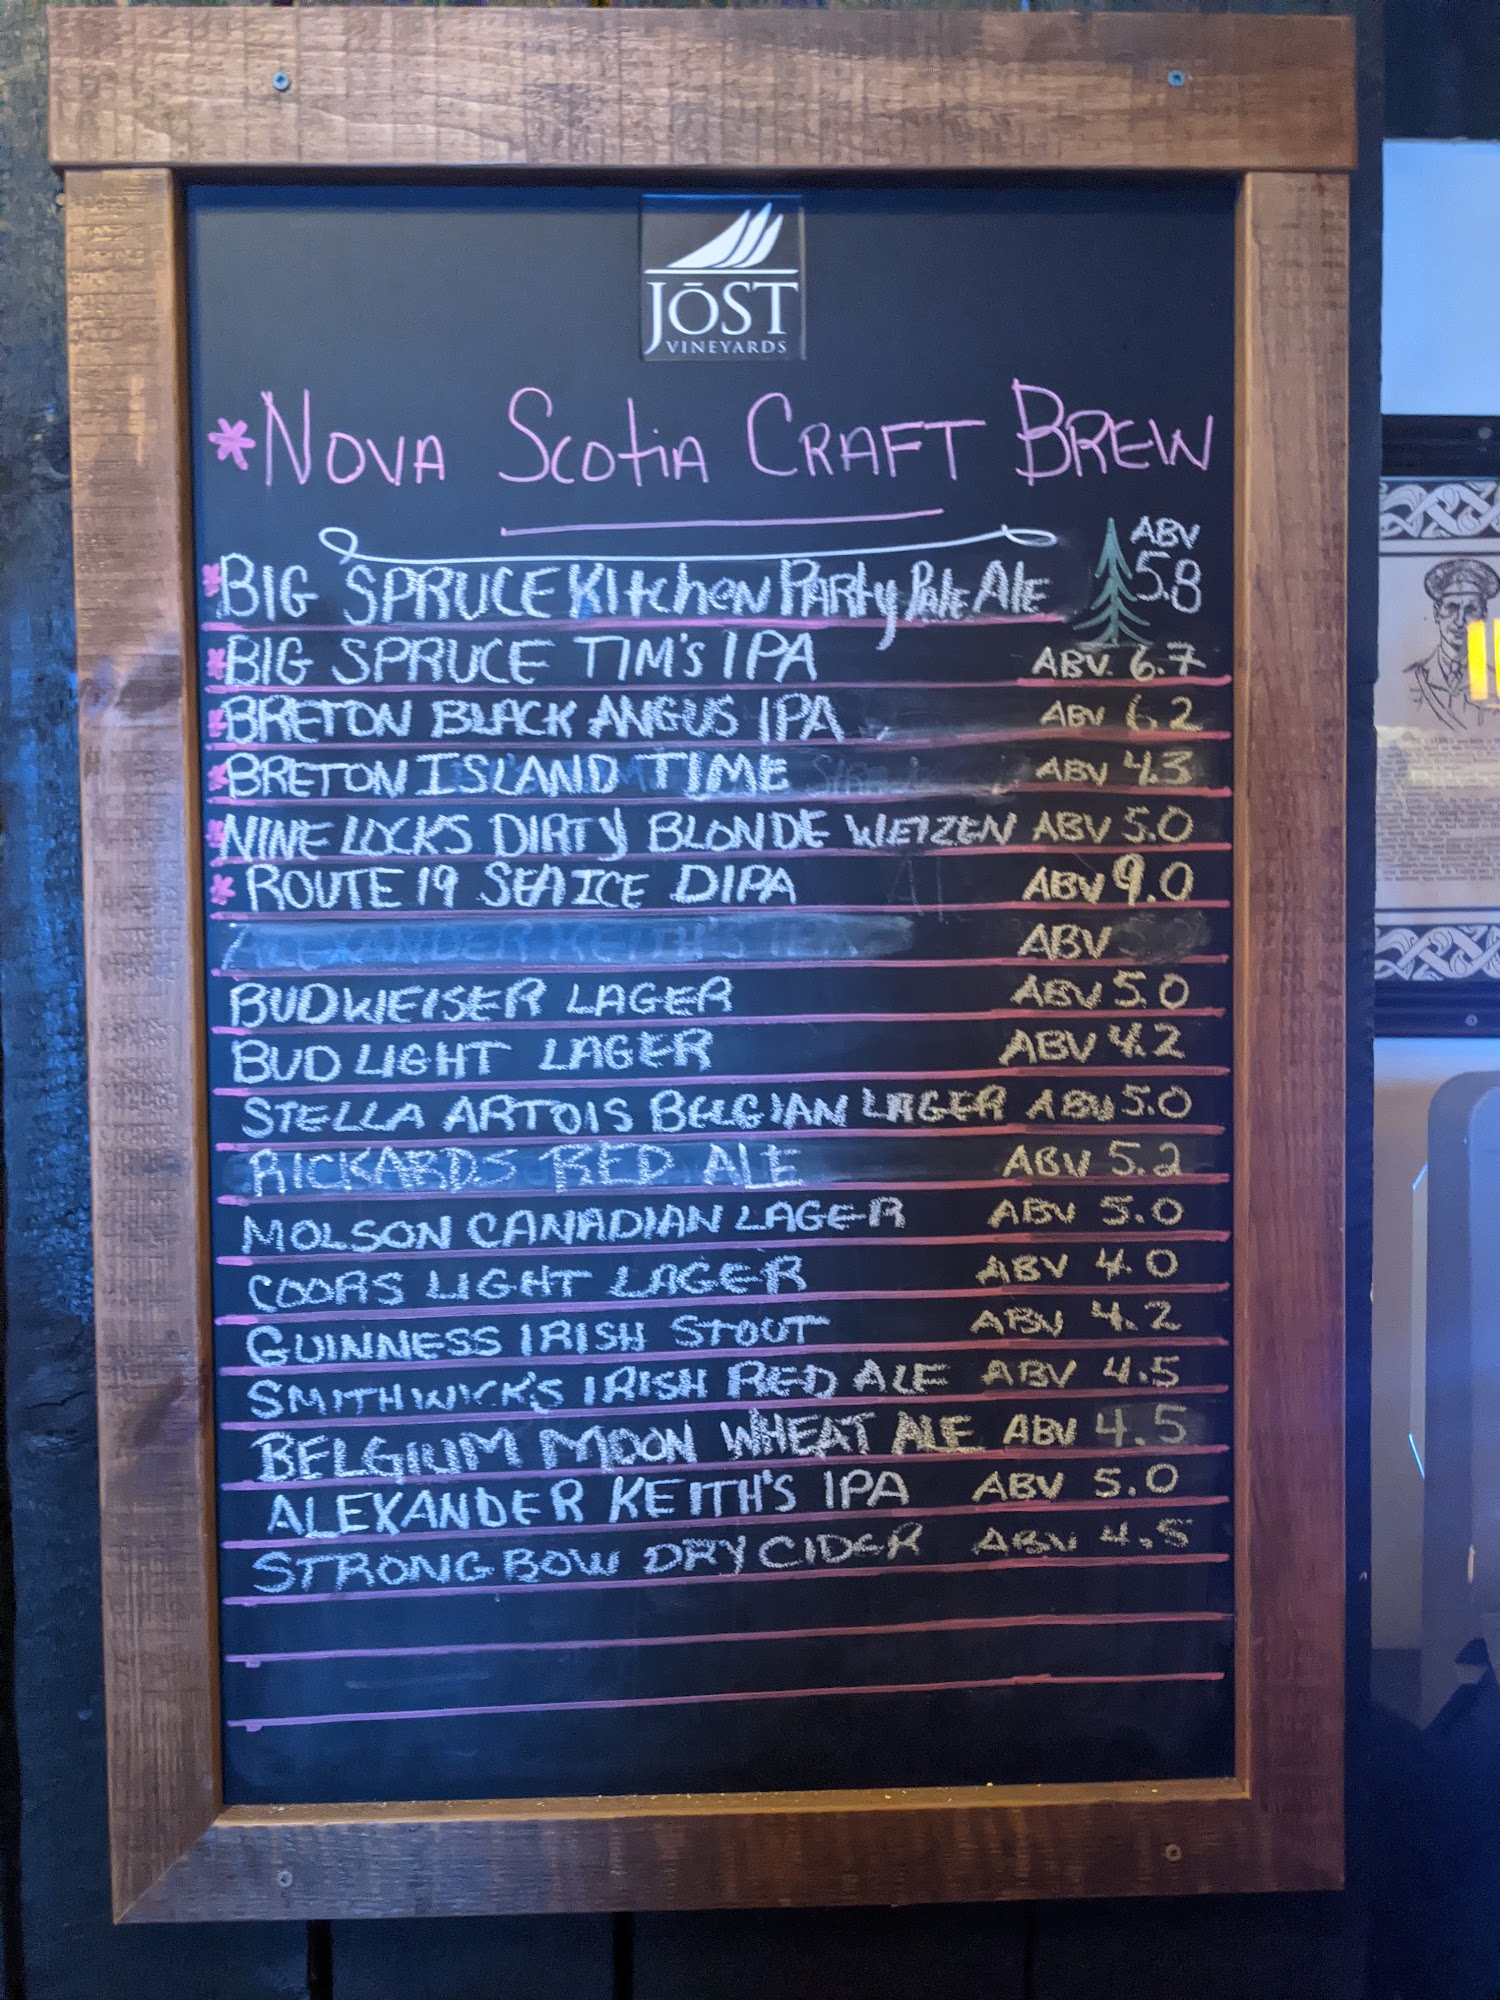 JŌST
VINEYARDS
*NOVA SCOTIA CRAFT BREW
ABV
*BIG SPRUCE KitchEN PARty PALE ALE 5.8
*BIG SPRUCE TIM'S IPA ABV. 6.7
*BRETON BLACK ANGUS IPA ABV 6.2
*BRETON ISLAND TIME ABV 4.3
*NINE LOCKS DIRTY BLONDE WEIZEN ABV 5.0
*ROUTE 19 SEA ICE DIPA ABV 9.0
ALEXANDER KEITH'S IPA ABV
BUDWEISER LAGER ABV 5.0
BUD LIGHT LAGER ABV 4.2
STELLA ARTOIS BELGIAN LAGER ABV 5.0
RICKARDS RED ALE ABV 5.2
MOLSON CANADIAN LAGER ABV 5.0
COORS LIGHT LAGER ABV 4.0
GUINNESS IRISH STOUT ABV 4.2
SMITHWICK'S IRISH RED ALE ABV 4.5
BELGIUM MOON WHEAT ALE ABV 4.5
ALEXANDER KEITH'S IPA ABV 5.0
STRONGBOW DRY CIDER ABV 4.5